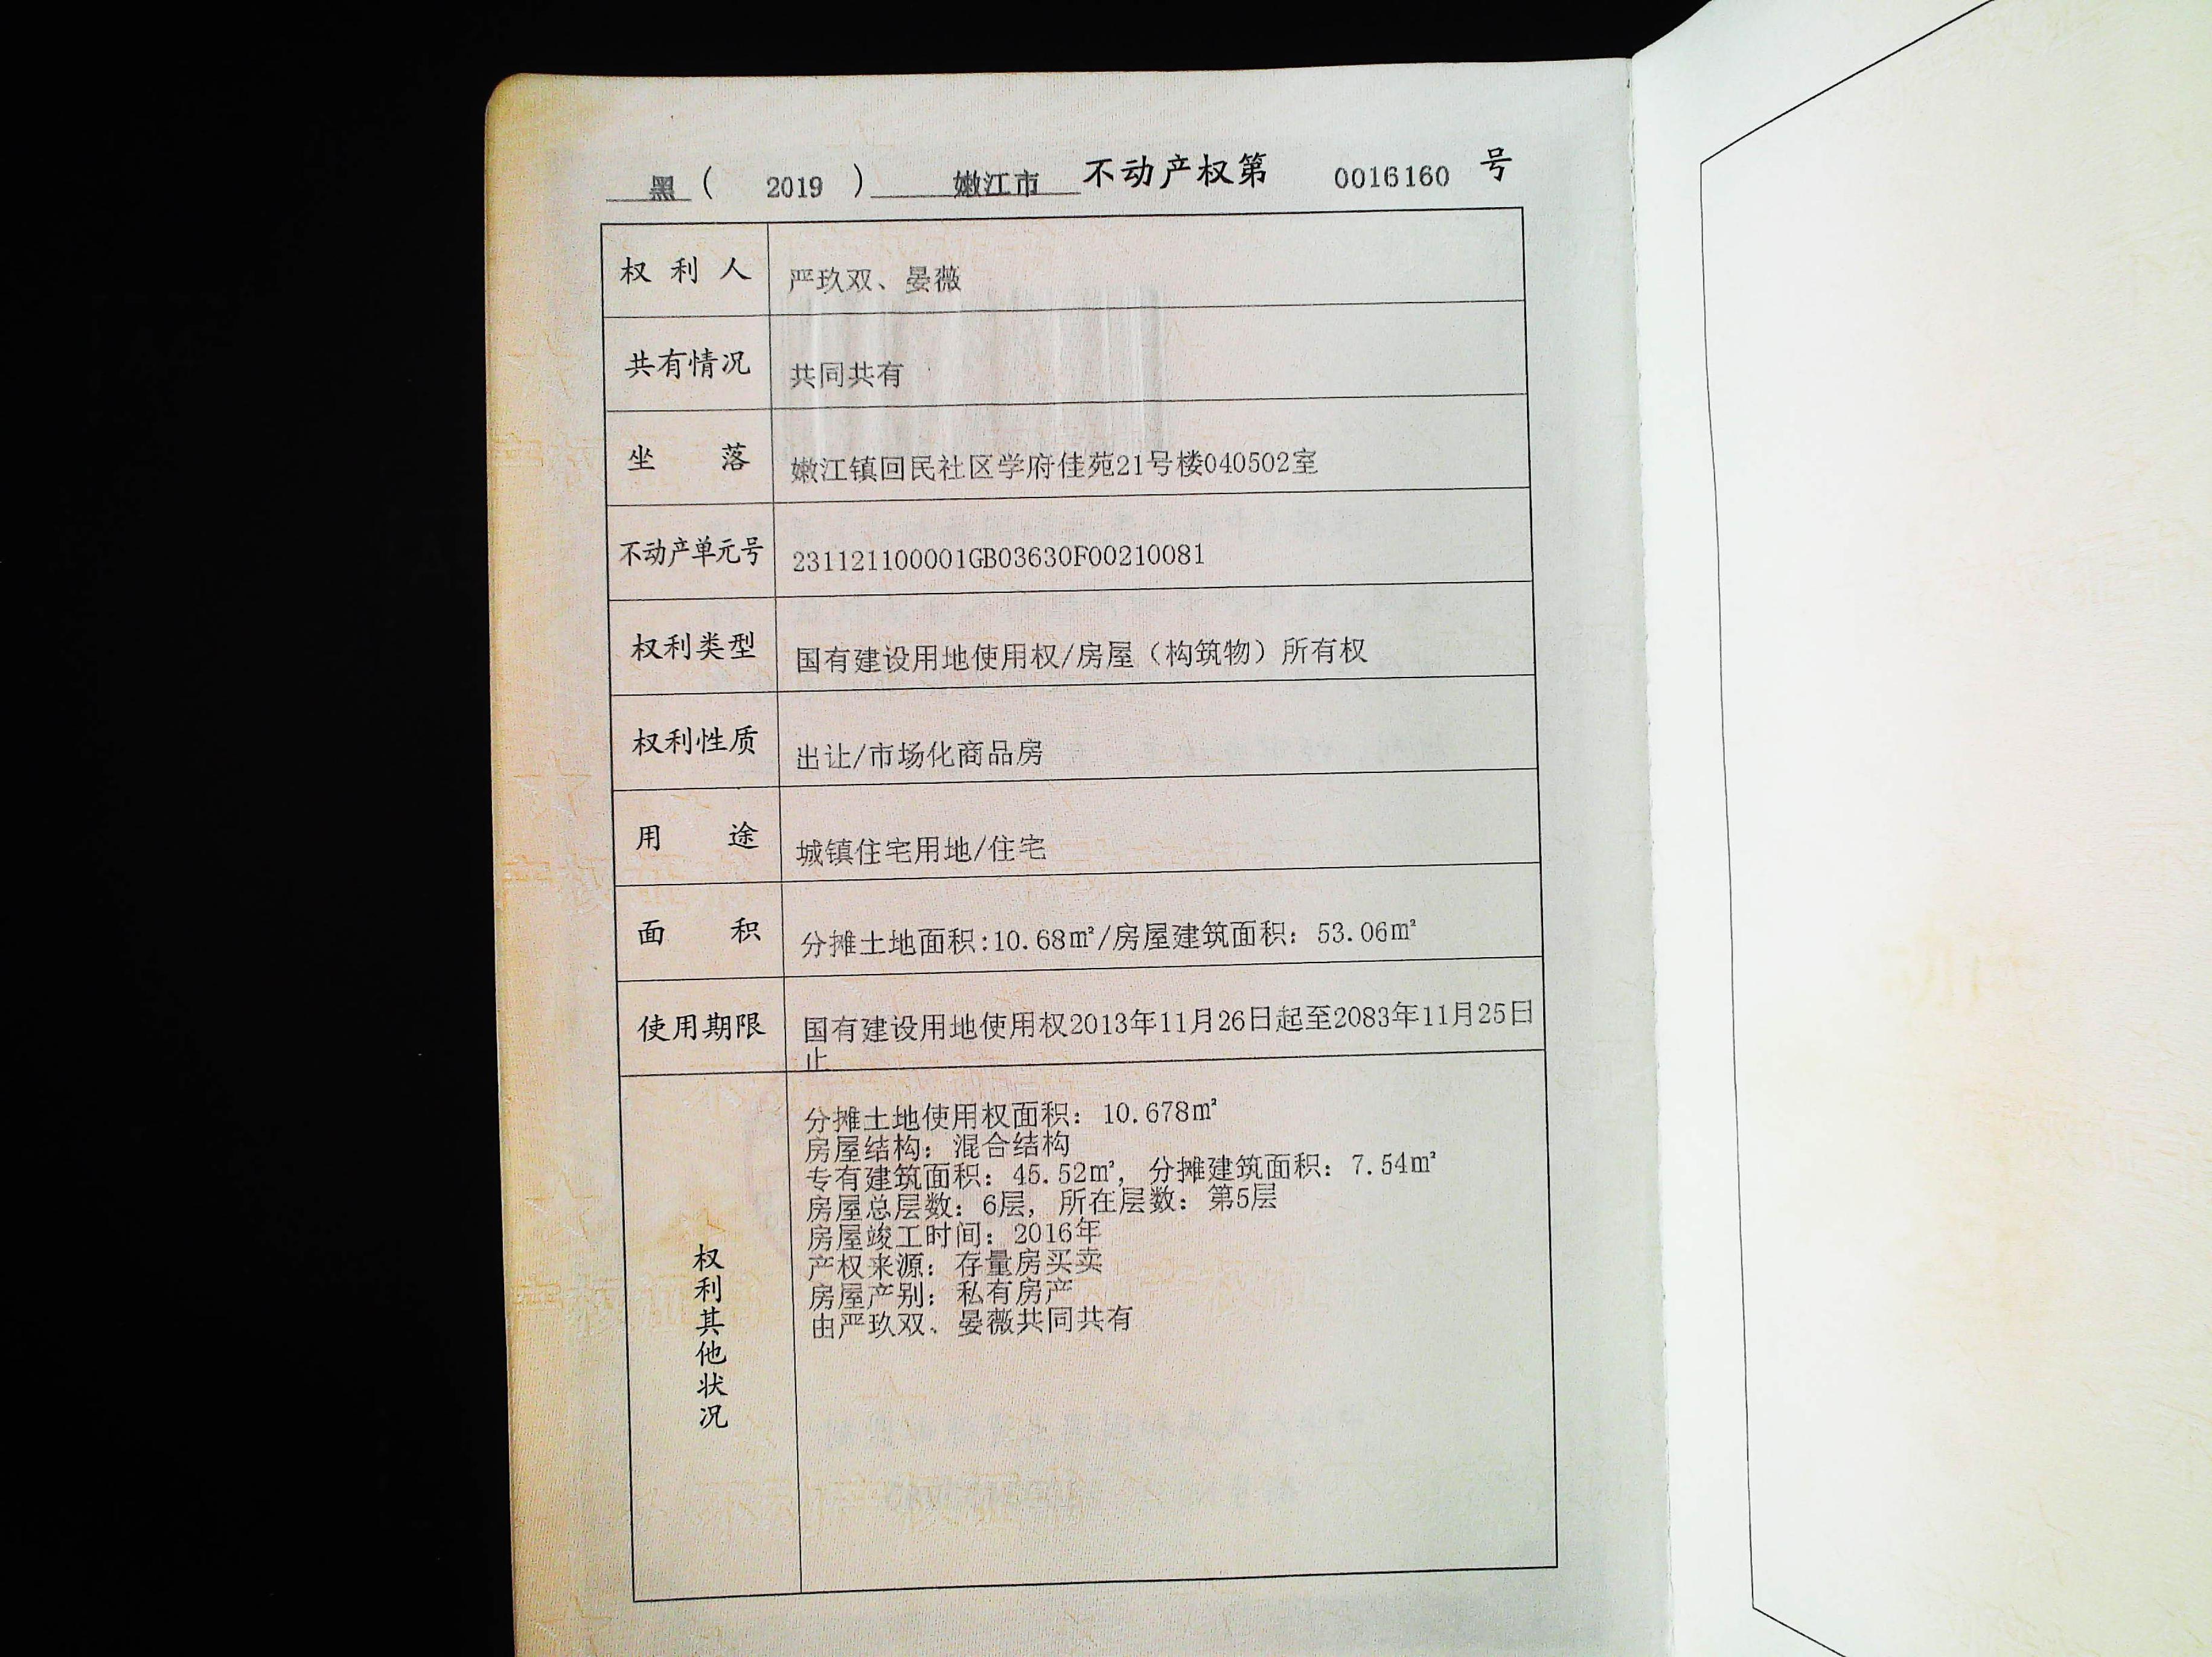 黑（ 2019 ） 嫩江市 不动产权第 0016160 号
权利人 严玖双、晏薇
共有情况 共同共有
坐落 嫩江镇回民社区学府佳苑21号楼040502室
不动产单元号 231121100001GB03630F00210081
权利类型 国有建设用地使用权/房屋（构筑物）所有权
权利性质 出让/市场化商品房
用途 城镇住宅用地/住宅
面积 分摊土地面积:10.68㎡/房屋建筑面积：53.06㎡
使用期限 国有建设用地使用权2013年11月26日起至2083年11月25日
止
权利其他状况
分摊土地使用权面积：10.678㎡
房屋结构：混合结构
专有建筑面积：45.52㎡，分摊建筑面积：7.54㎡
房屋总层数：6层，所在层数：第5层
房屋竣工时间：2016年
产权来源：存量房买卖
房屋产别：私有房产
由严玖双、晏薇共同共有